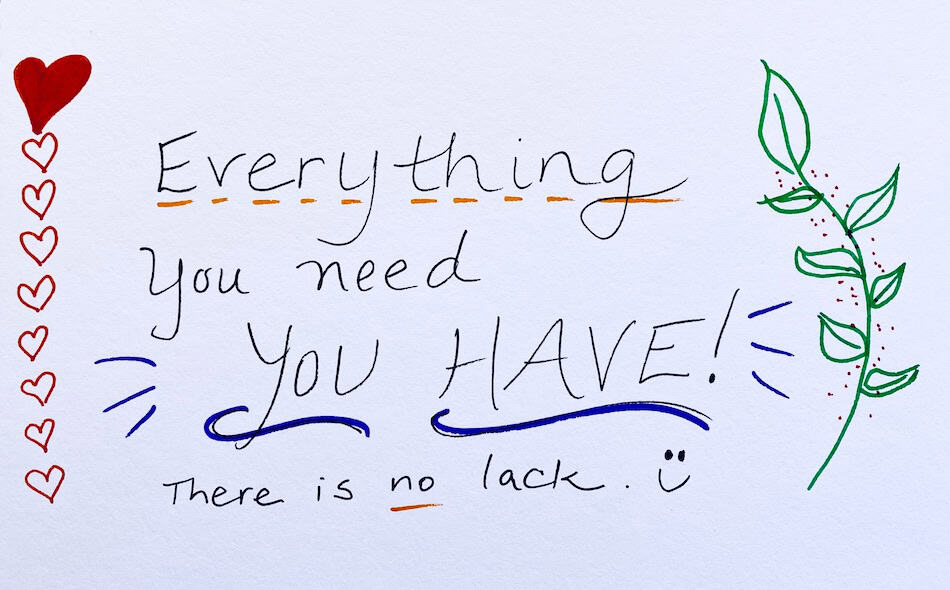 Everything
you need
YOU HAVE!
There is no lack. ü